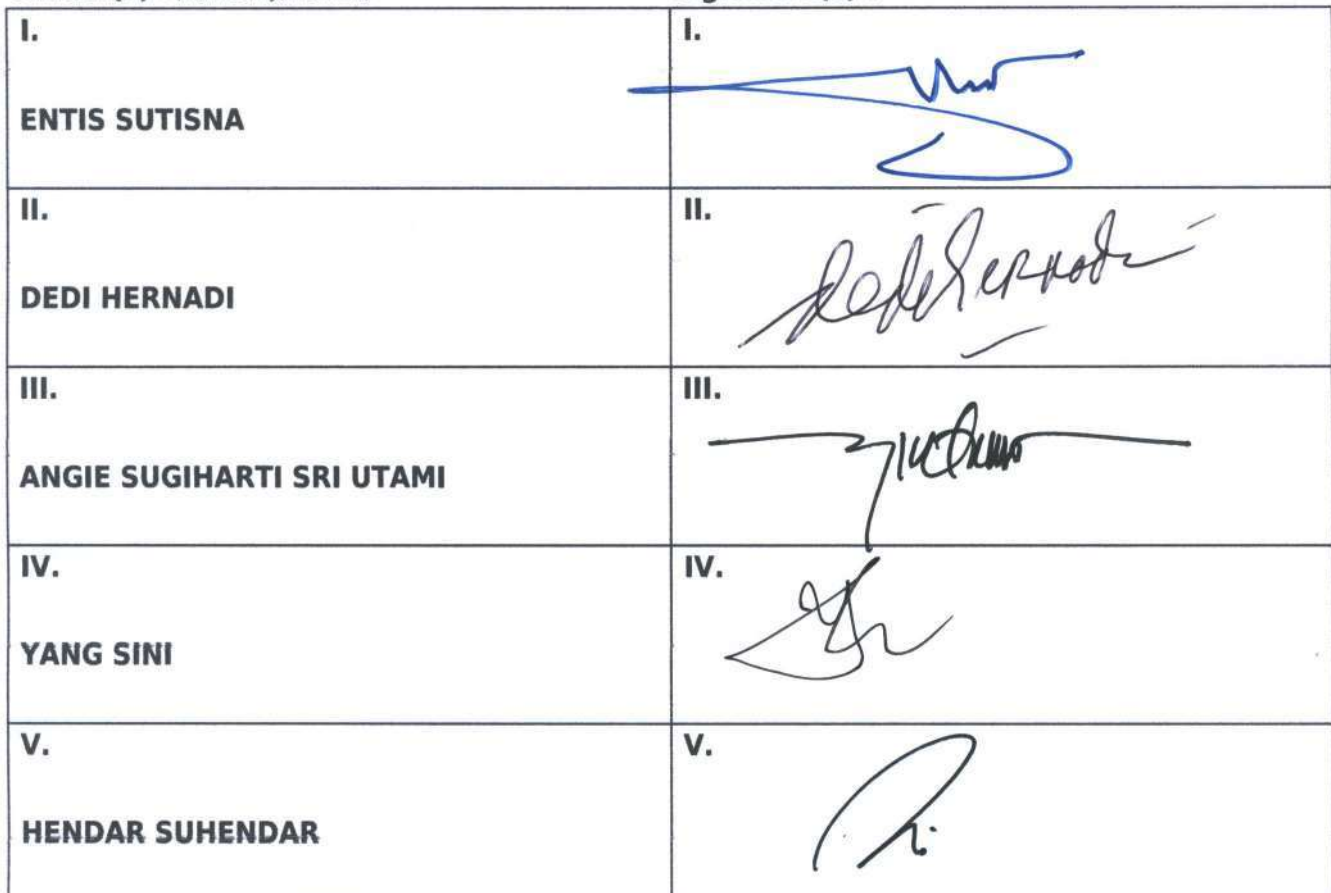 I.
I.
ENTIS SUTISNA
II.
II.
DEDI HERNADI
Dedi Hernadi
III.
III.
ANGIE SUGIHARTI SRI UTAMI
IV.
IV.
YANG SINI
V.
V.
HENDAR SUHENDAR